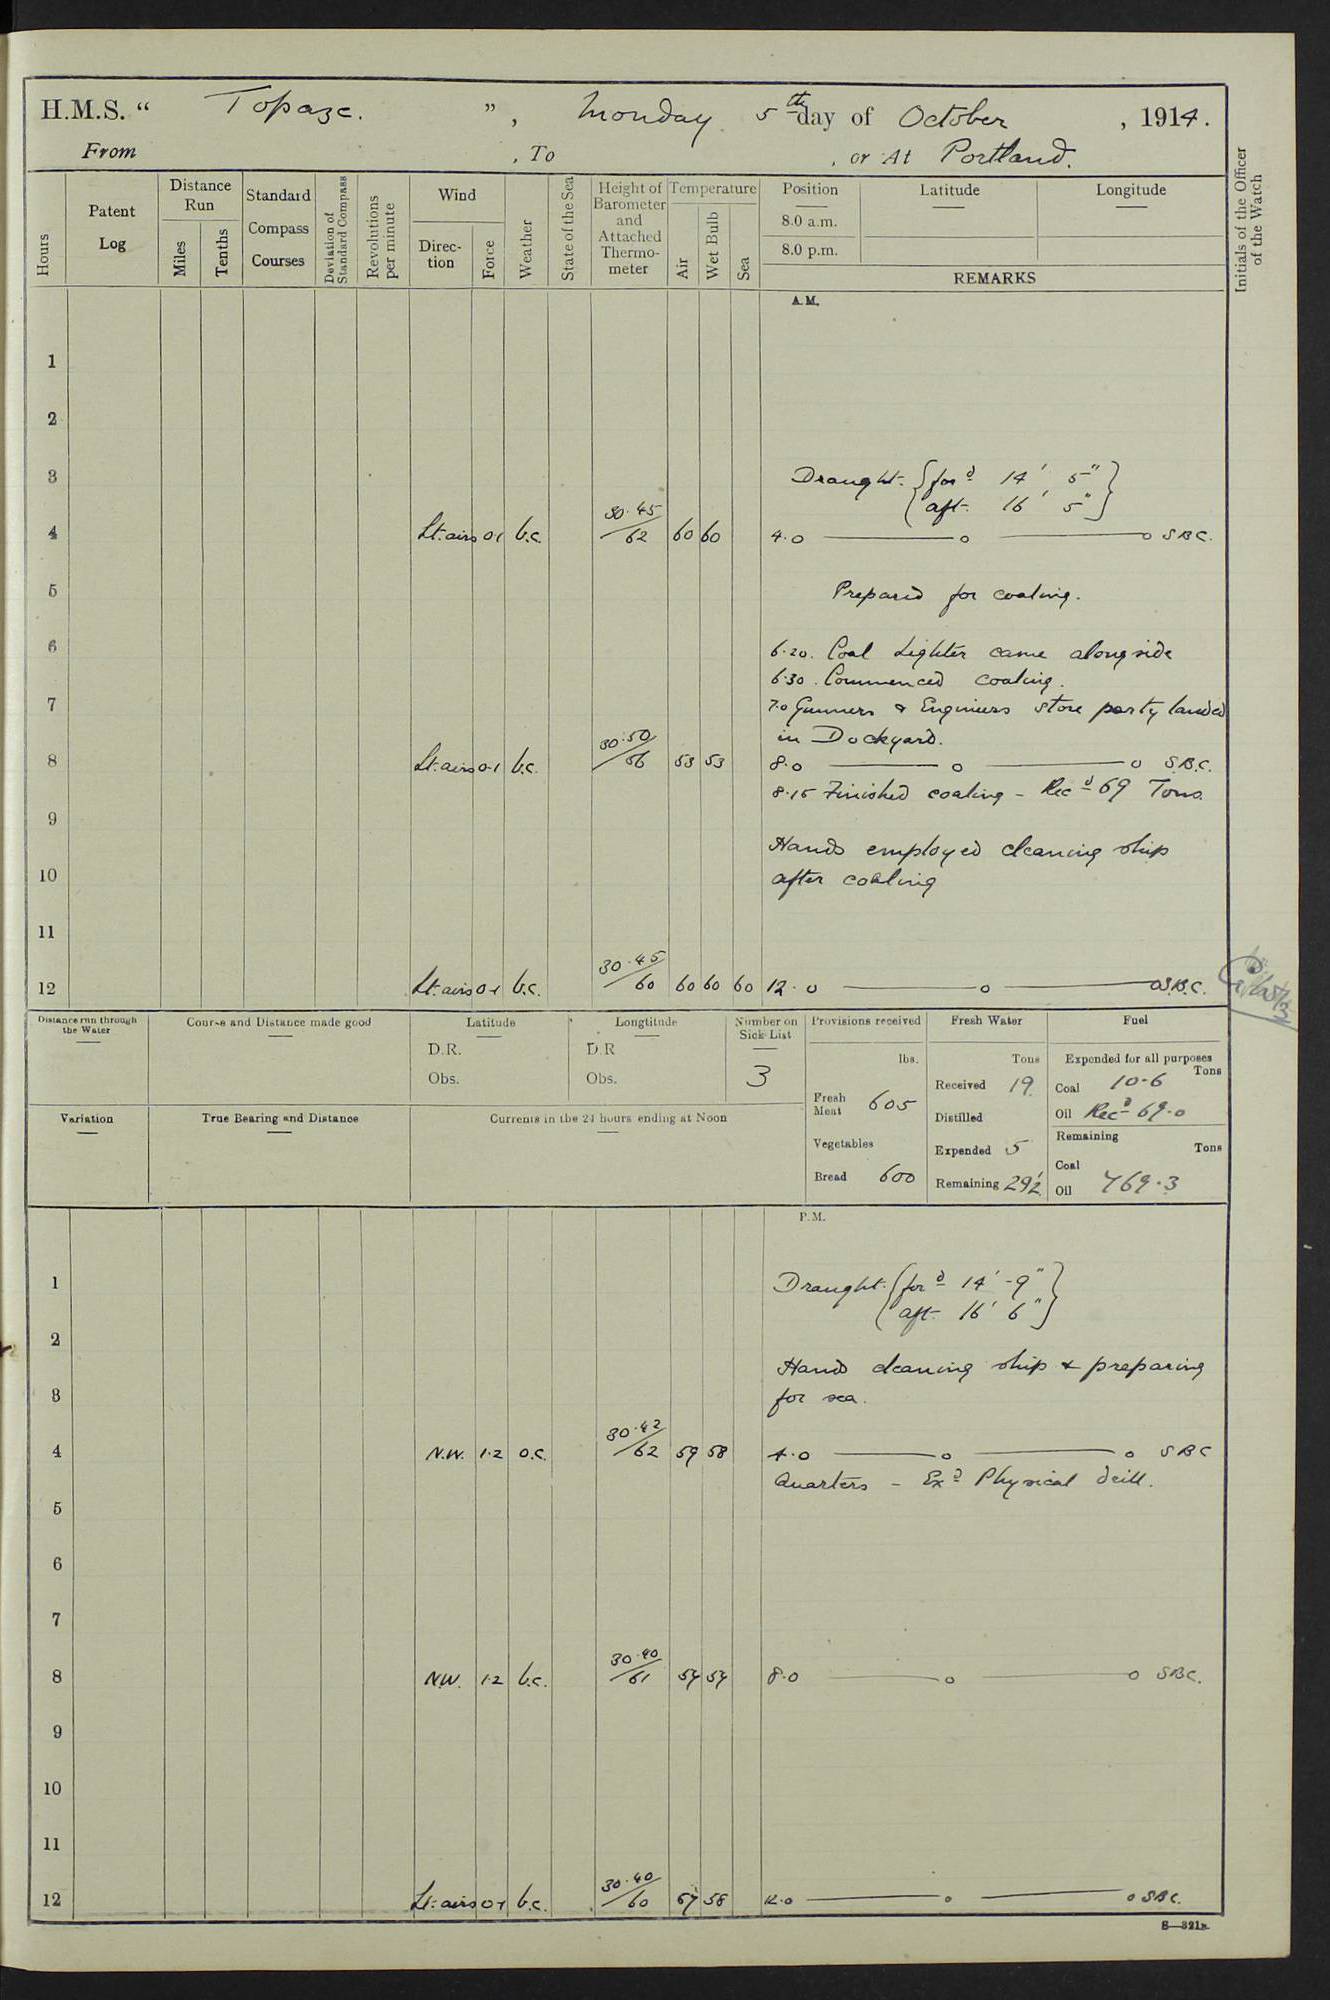 H.M.S. “ Topaze. ”, Monday 5th day of October, 1914.
From , To , or At Portland.
Hours
Patent Log
Distance Run
Miles
Tenths
Standard Compass Courses
Deviation of Standard Compass
Revolutions per minute
Wind
Direction
Force
Weather
State of the Sea
Height of Barometer and Attached Thermometer
Temperature
Air
Wet Bulb
Sea
Position
8.0 a.m.
8.0 p.m.
Latitude
Longitude
REMARKS
Initials of the Officer of the Watch
A.M.
1
2
3 Draught. { ford 14' 5"
aft. 16' 5" }
4 Lt. airs 0.1 b.c. 30.45/62 60 60 4.0 — o — o S.B.C.
5 Prepared for coaling.
6 6.20. Coal Lighter came alongside
6.30. Commenced coaling.
7 7.0 Gunners & Engineers store party landed
in Dockyard.
8 Lt. airs 0.1 b.c. 30.50/56 53 53 8.0 — o — o S.B.C.
8.15 Finished coaling - Recd 69 Tons.
9
Hands employed cleaning ship
10 after coaling
11
12 Lt. airs 0.1 b.c. 30.45/60 60 60 60 12.0 — o — o S.B.C.
Distance run through the Water
Course and Distance made good
Latitude
D.R.
Obs.
Longtitude
D.R
Obs.
Number on Sick List
3
Provisions received
lbs.
Fresh Meat 605
Vegetables
Bread 600
Fresh Water
Tons
Received 19
Distilled
Expended 5
Remaining 292
Fuel
Expended for all purposes
Tons
Coal 10.6
Oil Recd 69.0
Remaining
Tons
Coal
Oil 769.3
Variation
True Bearing and Distance
Currents in the 24 hours ending at Noon
P.M.
1 Draught. { ford 14' - 9"
aft. 16' 6" }
2
Hands cleaning ship & preparing
3 for sea.
4 N.W. 1.2 o.c. 30.42/62 59 58 4.0 — o — o SBC
Quarters - Exd Physical drill.
5
6
7
8 N.W. 1.2 b.c. 30.40/61 57 57 8.0 — o — o SBC.
9
10
11
12 Lt. airs 0.1 b.c. 30.40/60 58 12.0 — o — o SBC.
S—321B.